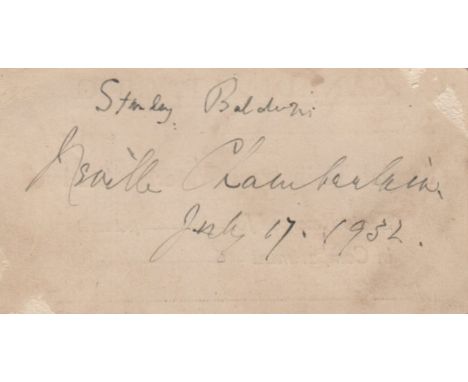 Stanley Baldwin
Neville Chamberlain.
July 17. 1932.